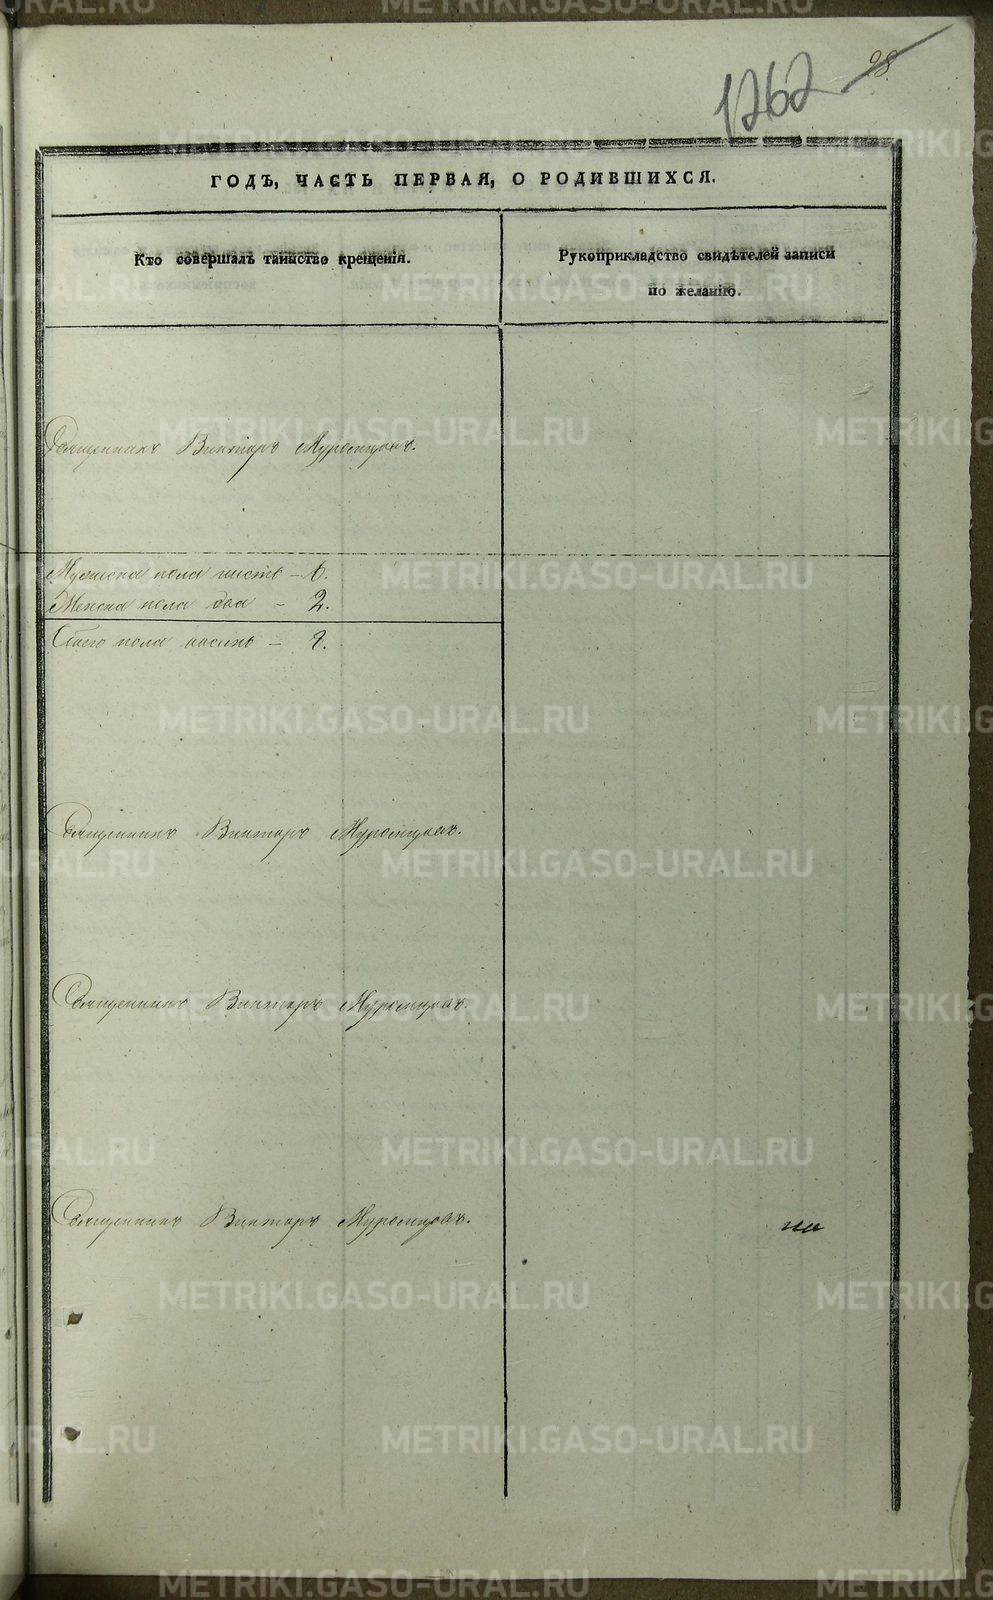 28.
1262
ГОДЪ, ЧАСТЬ ПЕРВАЯ, О РОДИВШИХСЯ.
Кто совершалъ таинство крещенія.
Рукоприкладство свидѣтелей записи
по желанію.
Священникъ Викторъ Муромцовъ.
Мужеска пола шесть – 6.
Женска пола два – 2.
Обоего пола восемь – 8.
Священникъ Викторъ Муромцовъ.
Священникъ Викторъ Муромцовъ.
Священникъ Викторъ Муромцовъ.
на
METRIKI.GASO-URAL.RU